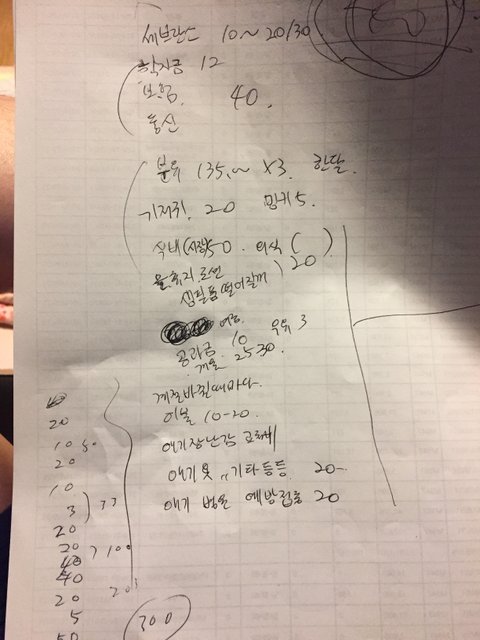 세브란스 10~20/30
학자금 12
보험. 40.
통신
분유 135.~ X3. 한달.
기저귀. 20
식비(시장)50. 외식( )
물휴지.로션 20
생필품떨어질때
우유 3
공과금 10
겨울 25 30.
계절바뀔때마다.
이불 10-20.
애기장난감 교육비
애기 옷 기타등등. 20-
애기 병원 예방접종 20
20
10 50
20
10
3 ) 33
20
20 > 100
40
40
20 20
5
50
300